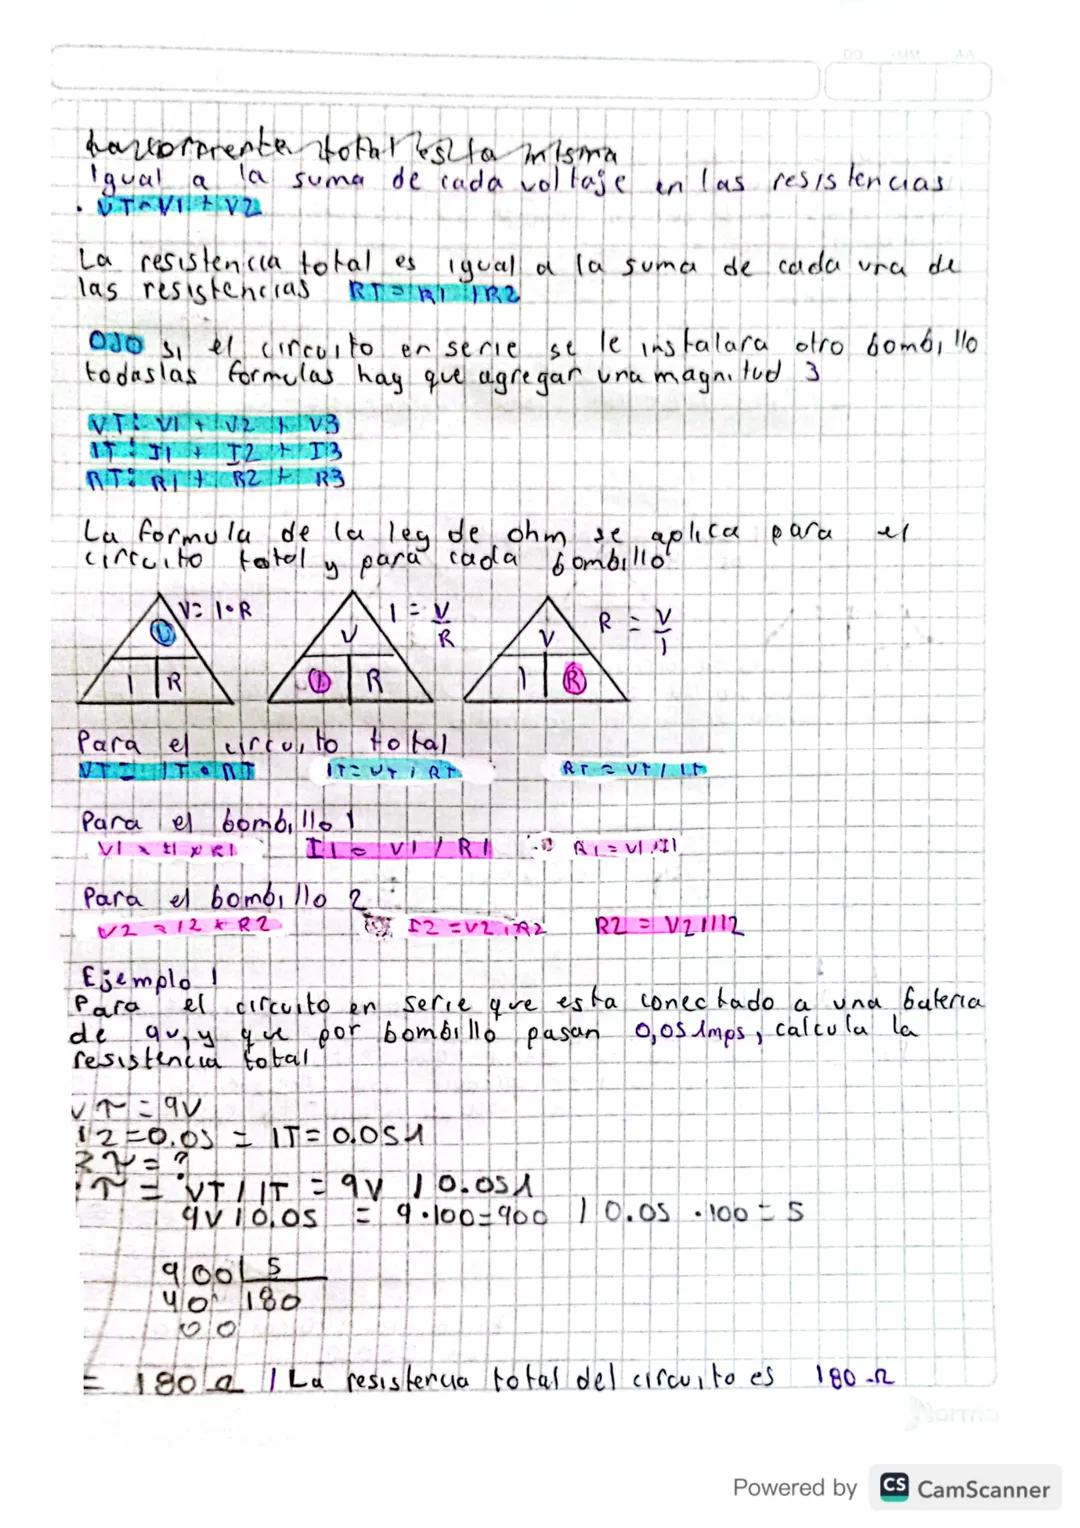 DD MM AA
la corriente total es la misma
Igual a la suma de cada voltaje en las resistencias
. VT = V1 + V2
La resistencia total es igual a la suma de cada una de
las resistencias RT = R1 + R2
OJO si el circuito en serie se le instalara otro bombillo
todas las formulas hay que agregar una magnitud 3
VT: V1 + V2 + V3
IT: I1 + I2 + I3
RT: R1 + R2 + R3
La formula de la ley de ohm se aplica para el
circuito total y para cada bombillo
V = I • R
I = V/R
R = V/I
V I R
V I R
V I R
Para el circuito total
VT = IT • RT IT = VT / RT RT = VT / IT
Para el bombillo 1
V1 = I1 x R1 I1 = V1 / R1 R1 = V1 / I1
Para el bombillo 2 :
V2 = I2 x R2 I2 = V2 / R2 R2 = V2 / I2
Ejemplo 1
Para el circuito en serie que esta conectado a una bateria
de 9v, y que por bombillo pasan 0,05 Amps, calcula la
resistencia total
VT = 9V
I2 = 0.05 = IT = 0.05A
RT = ?
RT = VT / IT = 9V / 0.05A
9V / 0.05 = 9 • 100 = 900 / 0.05 • 100 = 5
900 5
40 180
00
= 180 Ω / La resistencia total del circuito es 180 Ω
Norma
Powered by CS CamScanner